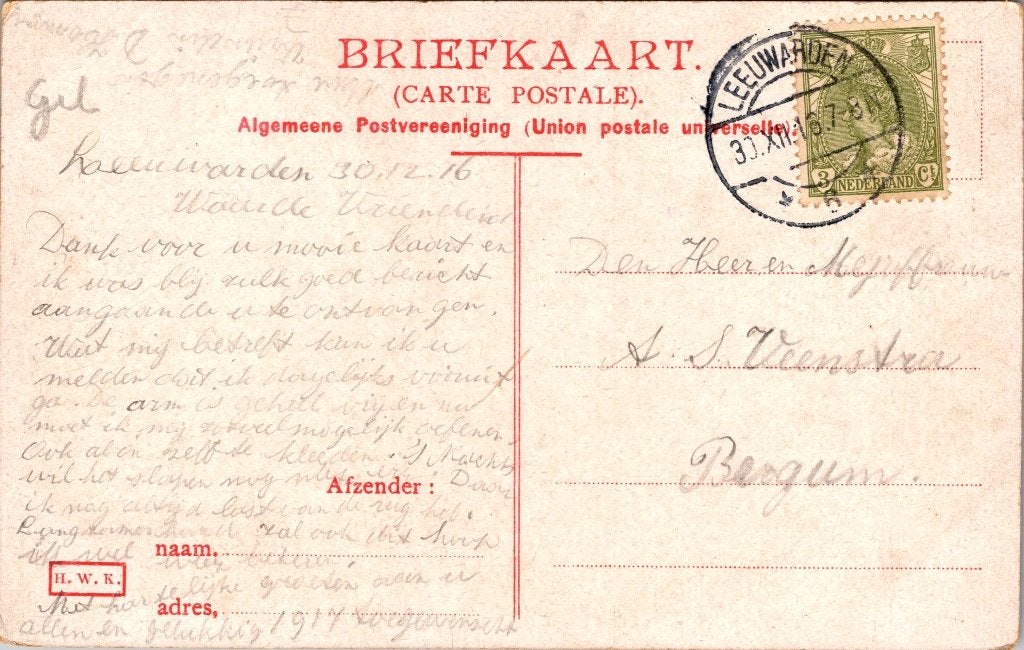 BRIEFKAART.
(CARTE POSTALE).
Algemeene Postvereeniging (Union postale universelle).
LEEUWARDEN
30.XII.16.7-8N
3 NEDERLAND Ct
Gel
Leeuwarden 30.12.16
Waarde Vrienden!
Dank voor u mooie kaart en
ik was blij zulk goed bericht
aangaande u te ontvangen.
Wat mij betreft kan ik u
melden dat ik dagelijks vooruit
ga. De arm is geheel vrij en nu
moet ik mij zooveel mogelijk oefenen.
Ook al in zelf te kleeden. 's Nachts
wil het slapen nog niet Daar
ik nog altijd last van de rug heb.
zal ook dit hoop
ik wel weer beteren.
Met hartelijke groeten aan u
allen en gelukkig 1917 toegewenscht
Afzender:
naam,
adres,
H. W. K.
Den Heer en Mejuffrouw
A. S. Veenstra
Bergum.